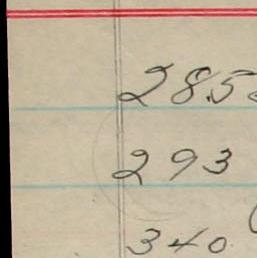 285
293
340